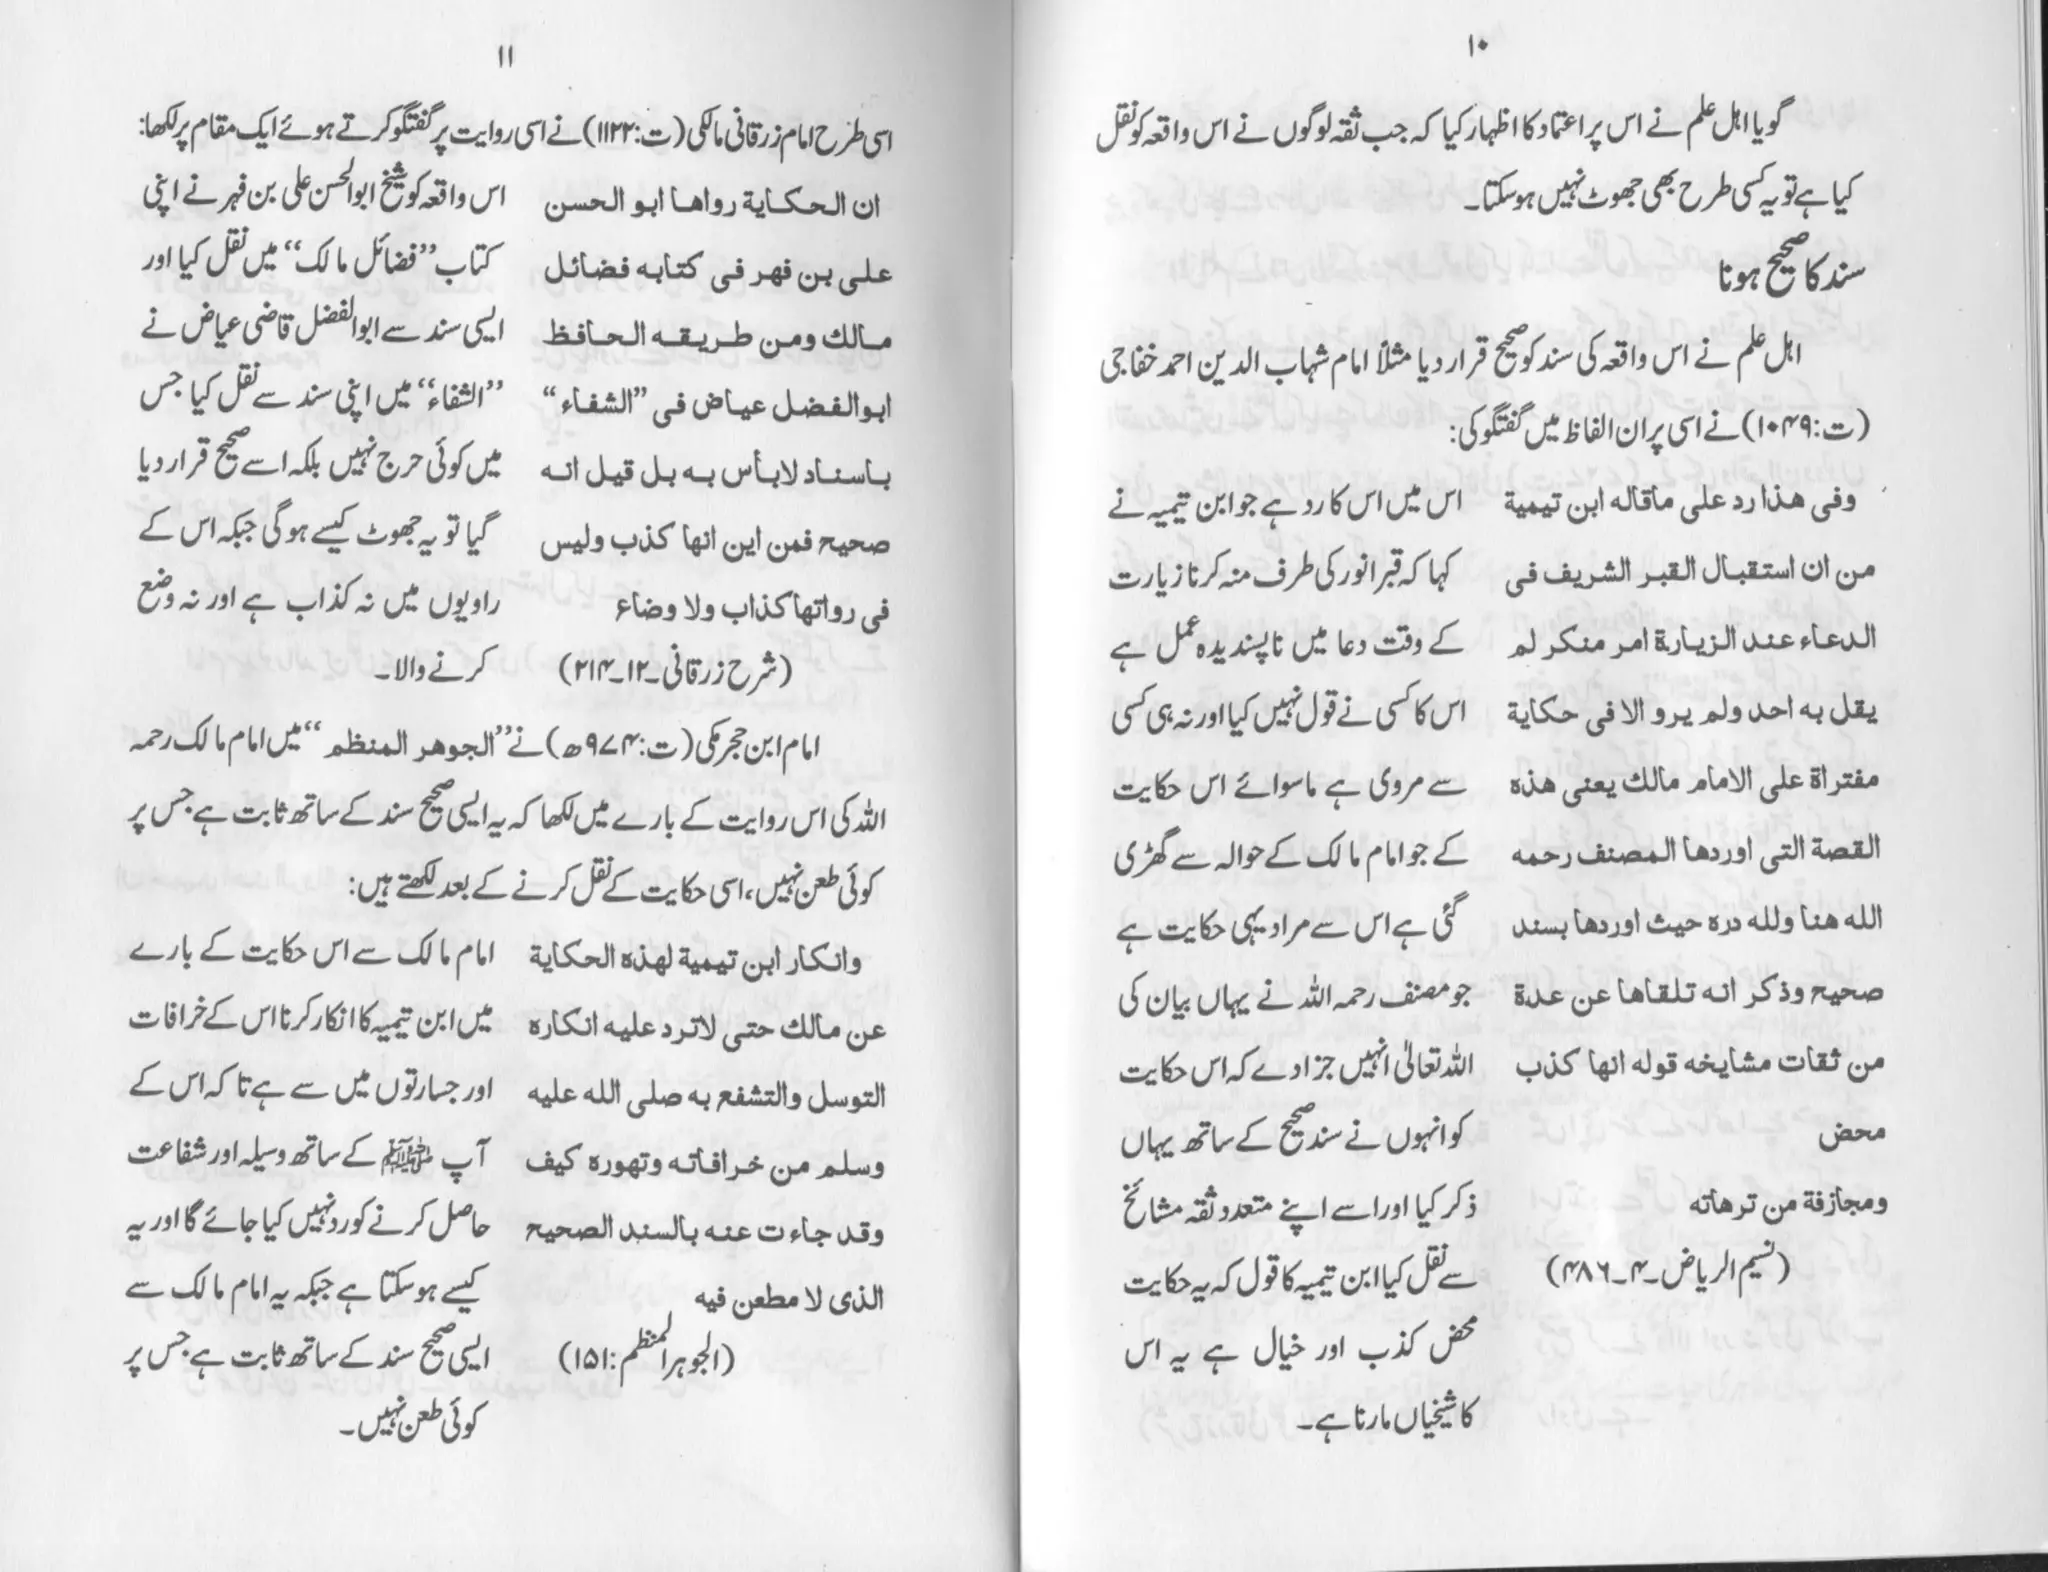 ۱۰
گویا اہل علم نے اس پر اعتماد کا اظہار کیا کہ جب ثقہ لوگوں نے اس واقعہ کو نقل
کیا ہے تو یہ کسی طرح بھی جھوٹ نہیں ہو سکتا۔
سند کا صحیح ہونا
اہل علم نے اس واقعہ کی سند کو صحیح قرار دیا مثلاً امام شہاب الدین احمد خفاجی
(ت:۱۰۴۹) نے اسی پر ان الفاظ میں گفتگو کی:
وفی هذا رد علی ماقاله ابن تیمیة
من ان استقبال القبر الشریف فی
الدعاء عند الزیارة امر منکر لم
یقل به احد ولم یرو الا فی حکایة
مفتراة علی الامام مالك یعنی هذه
القصة التی اوردها المصنف رحمه
الله هنا ولله دره حیث اوردها بسند
صحیح وذکر انه تلقاها عن عدة
من ثقات مشایخه قوله انها کذب
محض
ومجازفة من ترهاته
(نسیم الریاض۔۴۔۴۸۶)
اس میں اس کا رد ہے جو ابن تیمیہ نے
کہا کہ قبر انور کی طرف منہ کرنا زیارت
کے وقت دعا میں ناپسندیدہ عمل ہے
اس کا کسی نے قول نہیں کیا اور نہ ہی کسی
سے مروی ہے ماسوائے اس حکایت
کے جو امام مالک کے حوالہ سے گھڑی
گئی ہے اس سے مراد یہی حکایت ہے
جو مصنف رحمہ اللہ نے یہاں بیان کی
اللہ تعالیٰ انہیں جزا دے کہ اس حکایت
کو انہوں نے سند صحیح کے ساتھ یہاں
ذکر کیا اور اسے اپنے متعدد ثقہ مشائخ
سے نقل کیا ابن تیمیہ کا قول کہ یہ حکایت
محض کذب اور خیال ہے یہ اس
کا شیخیاں مارنا ہے۔
۱۱
اسی طرح امام زرقانی مالکی (ت:۱۱۲۲) نے اسی روایت پر گفتگو کرتے ہوئے ایک مقام پر لکھا:
ان الحکایة رواها ابو الحسن
علی بن فهر فی کتابه فضائل
مالك ومن طریقه الحافظ
ابوالفضل عیاض فی ”الشفاء“
باسناد لابأس به بل قیل انه
صحیح فمن این انها کذب ولیس
فی رواتها کذاب ولا وضاع
(شرح زرقانی۔۱۲۔۲۱۴)
اس واقعہ کو شیخ ابوالحسن علی بن فہر نے اپنی
کتاب ”فضائل مالک“ میں نقل کیا اور
ایسی سند سے ابوالفضل قاضی عیاض نے
”الشفاء“ میں اپنی سند سے نقل کیا جس
میں کوئی حرج نہیں بلکہ اسے صحیح قرار دیا
گیا تو یہ جھوٹ کیسے ہوگی جبکہ اس کے
راویوں میں نہ کذاب ہے اور نہ وضع
کرنے والا۔
امام ابن حجر مکی (ت:۹۷۴ھ) نے ”الجوهر المنظم“ میں امام مالک رحمہ
اللہ کی اس روایت کے بارے میں لکھا کہ یہ ایسی صحیح سند کے ساتھ ثابت ہے جس پر
کوئی طعن نہیں، اسی حکایت کے نقل کرنے کے بعد لکھتے ہیں:
وانکار ابن تیمیة لهذه الحکایة
عن مالك حتی لاترد علیه انکاره
التوسل والتشفع به صلی الله علیه
وسلم من خرافاته وتهوره کیف
وقد جاءت عنه بالسند الصحیح
الذی لا مطعن فیه
(الجوہر المنظم:۱۵۱)
امام مالک سے اس حکایت کے بارے
میں ابن تیمیہ کا انکار کرنا اس کے خرافات
اور جسارتوں میں سے ہے تاکہ اس کے
آپ ﷺ کے ساتھ وسیلہ اور شفاعت
حاصل کرنے کو رد نہیں کیا جائے گا اور یہ
کیسے ہو سکتا ہے جبکہ یہ امام مالک سے
ایسی صحیح سند کے ساتھ ثابت ہے جس پر
کوئی طعن نہیں۔